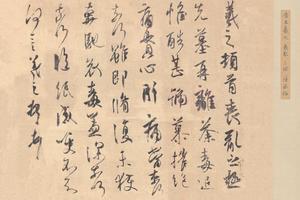 羲之頓首喪亂之極
先墓再離荼毒追
惟酷甚號慕摧絕
痛貫心肝痛當奈何
奈何雖即脩復未獲
奔馳哀毒益深奈何
奈何臨紙感哽不知
何言羲之頓首